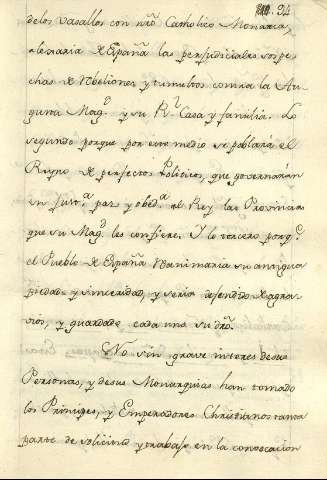 24
delos Vasallos con nr̃o Catholico Monarca,
alexaria de España las perjudiciales sospe
chas de Rebeliones y tumultos contra la Au-
gusta Mag.d y su R.l Casa y familia. Lo
segundo porque por este medio se poblará el
Reyno de perfectos Politicos, que governarán
en Just.a paz y obed.a al Rey las Provincias
que su Mag.d les confiere. Y lo tercero porq.e
el Pueblo de España Reanimaria su antigua
piedad y sinceridad, y seria defendido de agra-
vios, y guardado cada uno su dr̃o.
No sin grave interes desus
Personas, y desus Monarquias han tomado
los Principes, y Emperadores Christianos tanta
parte de solicitud y trabajo en la convocacion